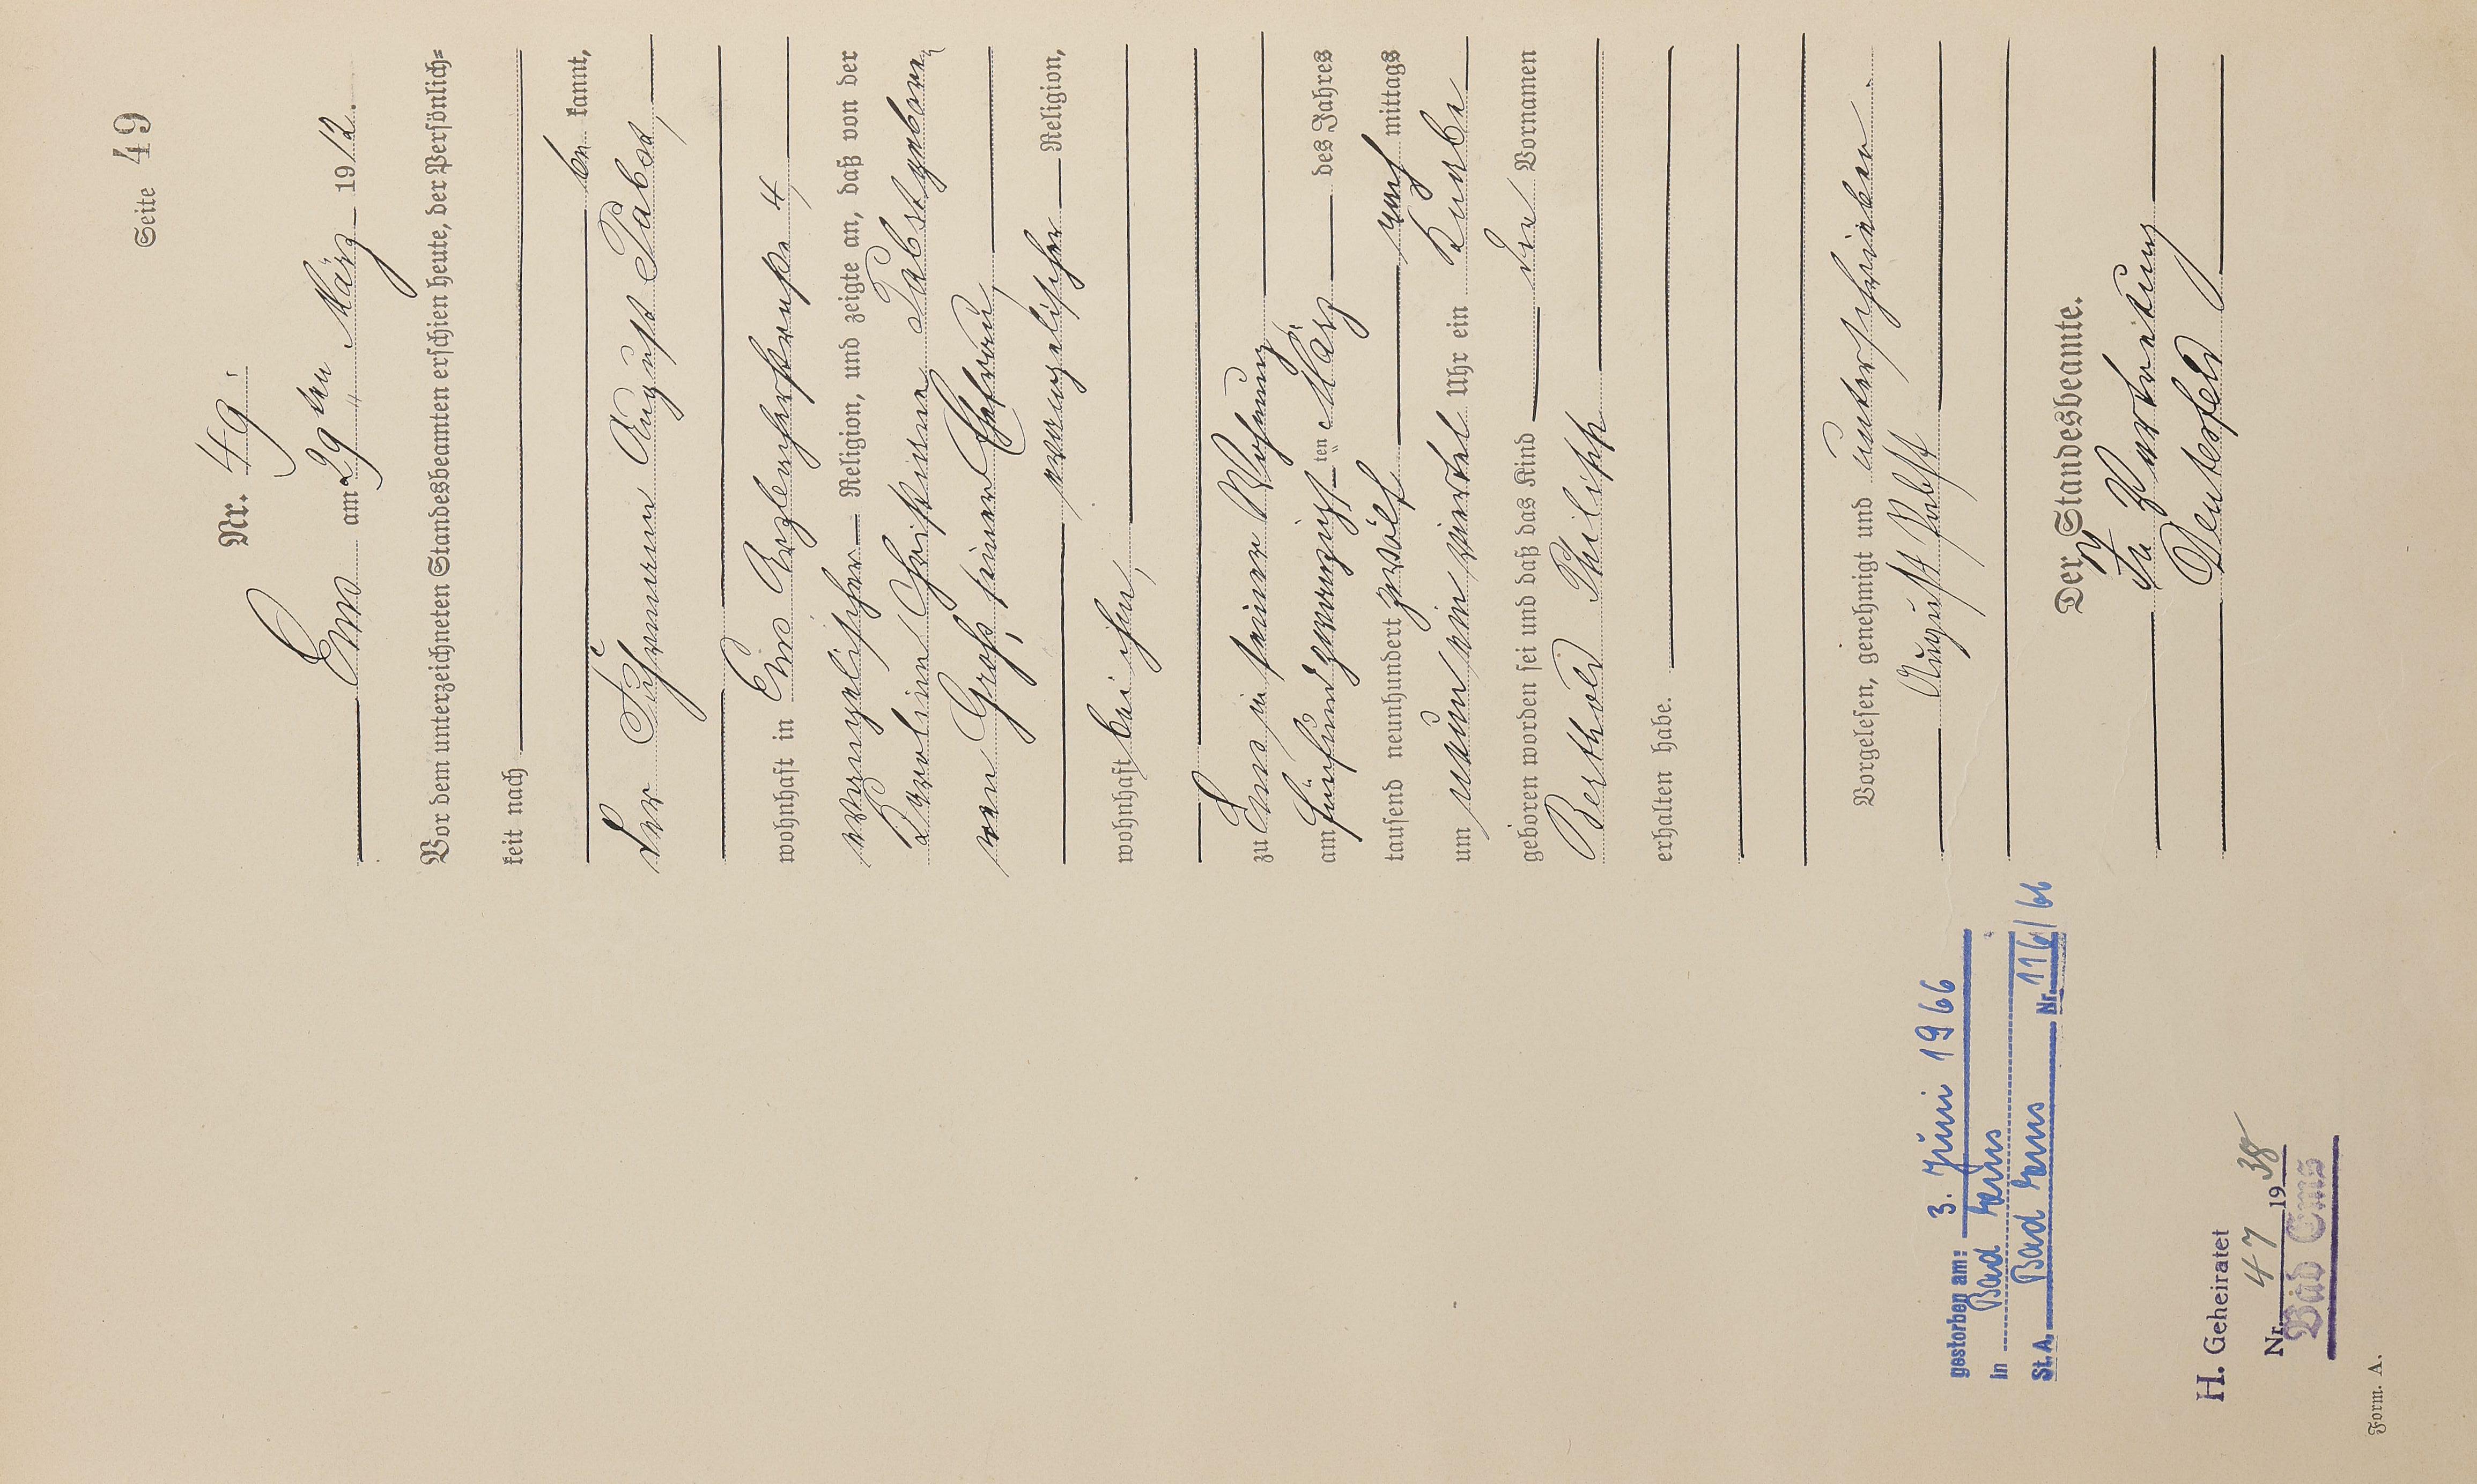 Seite 49
Nr. 49.
Ems am 29 ten März 1912.
Vor dem unterzeichneten Standesbeamten erschien heute, der Persönlich⸗
keit nach
be kannt,
der Fuhrmann August Pabst,
wohnhaft in Ems Arzbacherstraße 4,
evangelischer Religion, und zeigte an, daß von der
Karoline Christiane Pabst gebore⸗
nen Groß, seiner Ehefrau,
evangelischer Religion,
wohnhaft bei ihm,
zu Ems in seiner Wohnung
am fünfundzwanzigsten März des Jahres
tausend neunhundert zwölf nach mittags
um neun ein viertel Uhr ein Knabe
geboren worden sei und daß das Kind die Vornamen
Berthold Philipp
erhalten habe.
Vorgelesen, genehmigt und unterschrieben.
August Pabst
Der Standesbeamte.
In Vertretung
gestorben am: 3. Juni 1966
in Bad Ems
St.A. Bad Ems Nr. 116/66
H. Geheiratet
Nr. 47 1938
Bad Ems
Form. A.